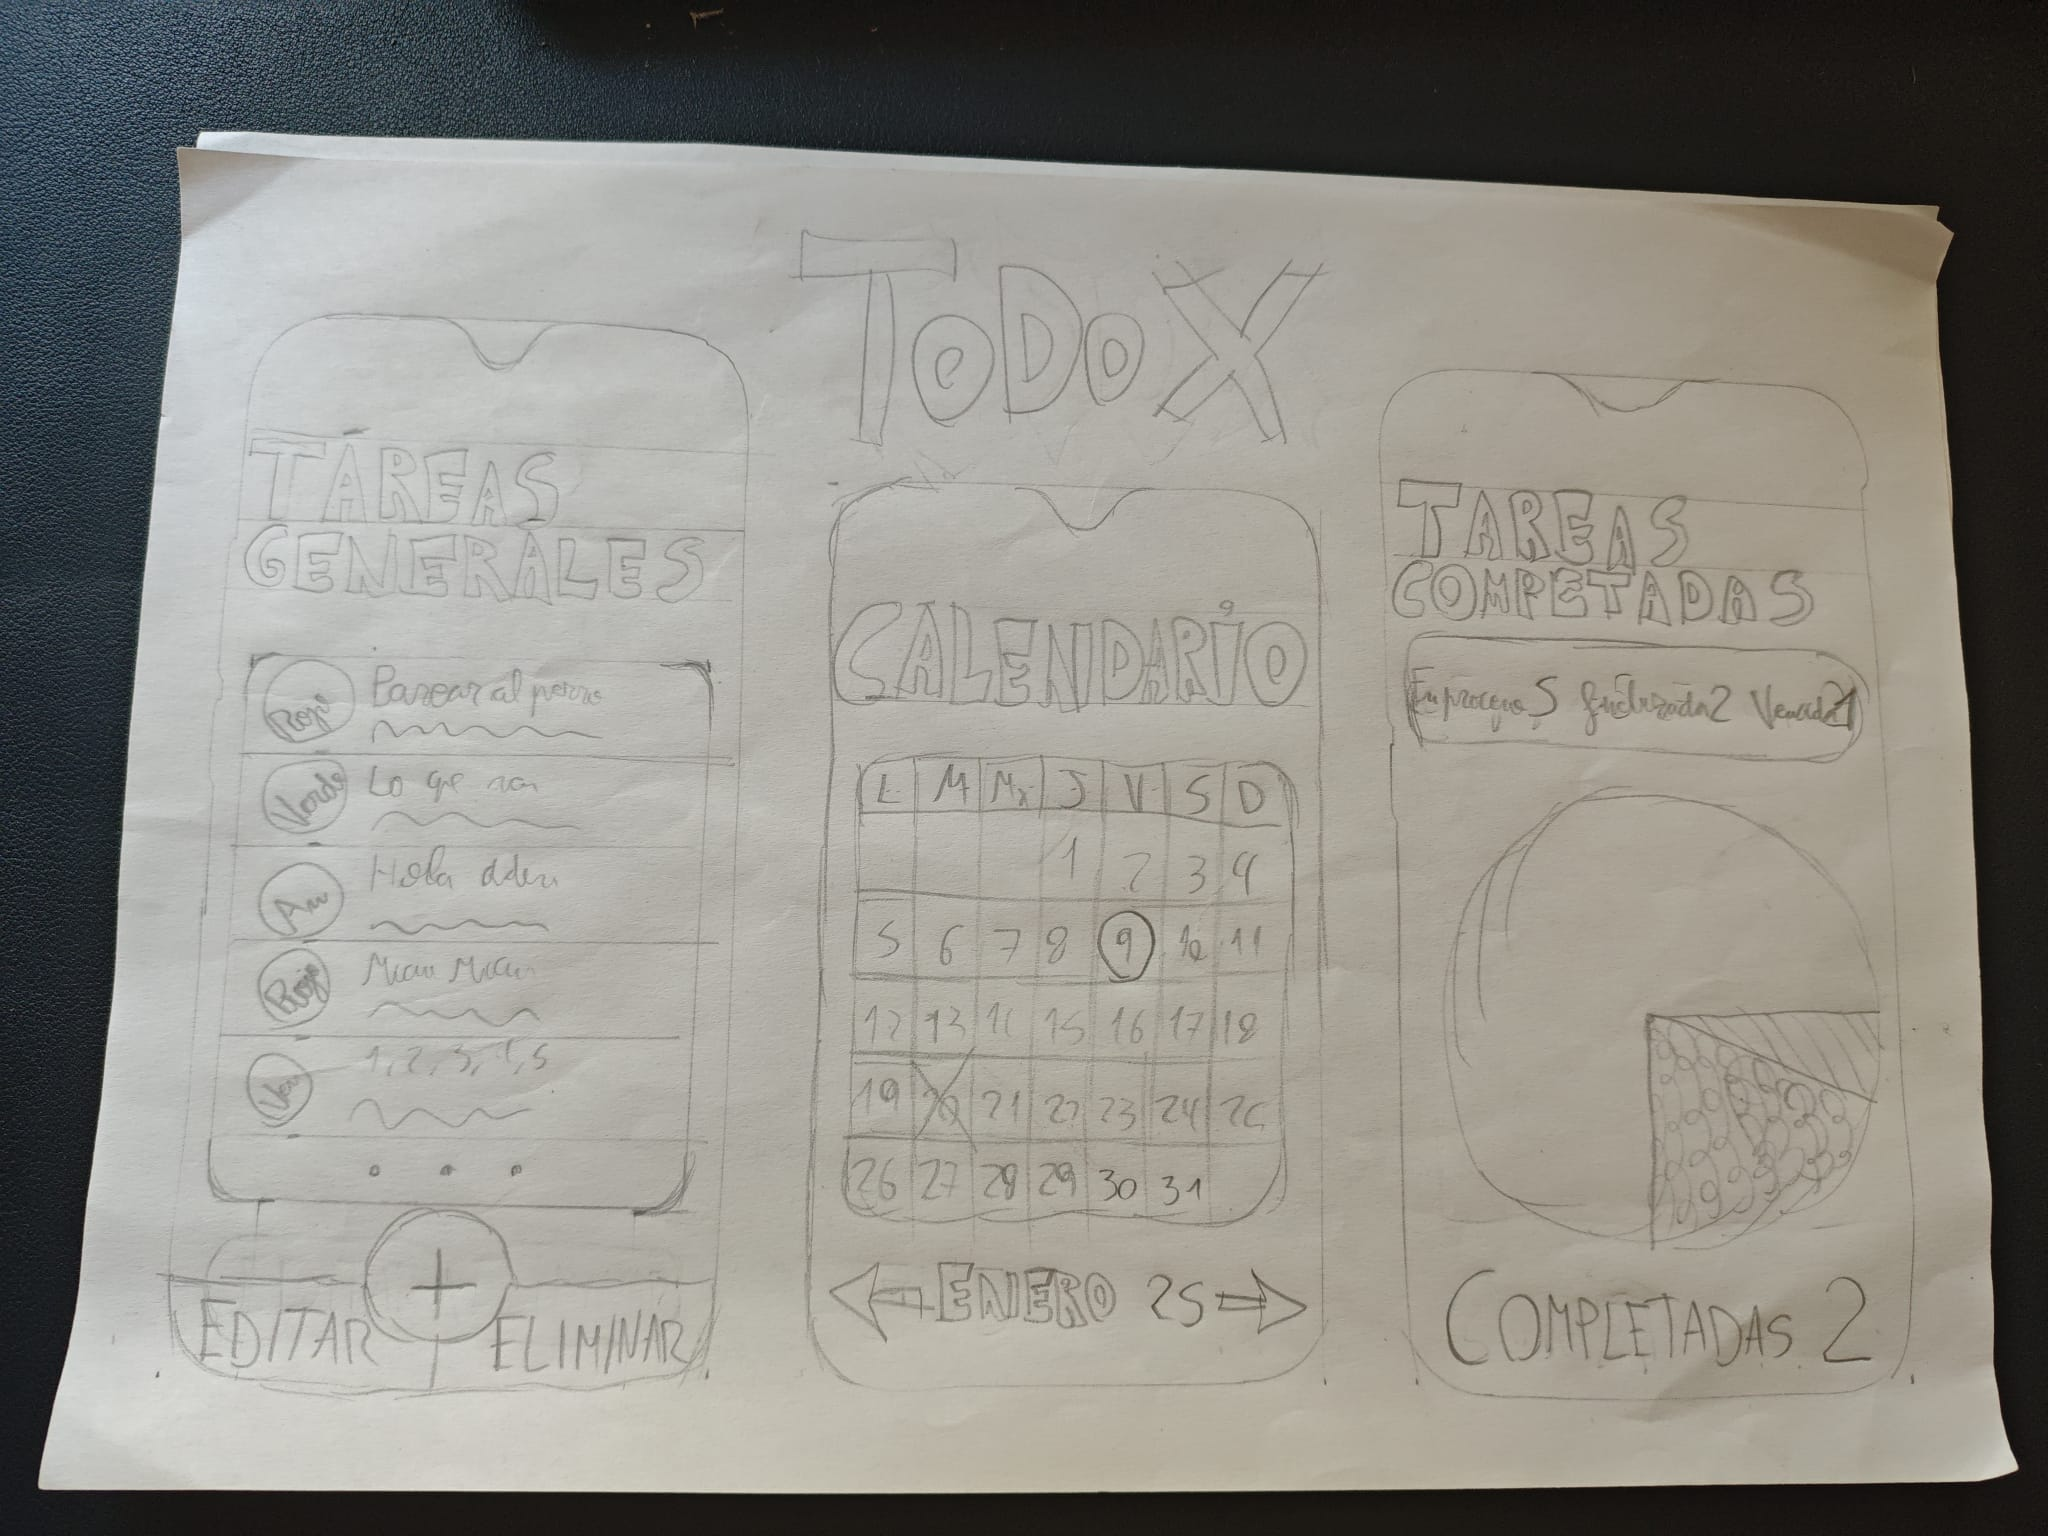 TODOX
TAREAS
GENERALES
Rojo
Pasear al perro
Verde
Lo que sea
Am
Hola
Rojo
Miau Miau
Ver
1, 2, 3, 4, 5
EDITAR
+
ELIMINAR
CALENDARIO
L M Mx J V S D
1 2 3 4
5 6 7 8 9 10 11
12 13 14 15 16 17 18
19 20 21 22 23 24 25
26 27 28 29 30 31
ENERO 25
TAREAS
COMPETADAS
En proceso 5 finalizada 2 Vencida 1
COMPLETADAS 2